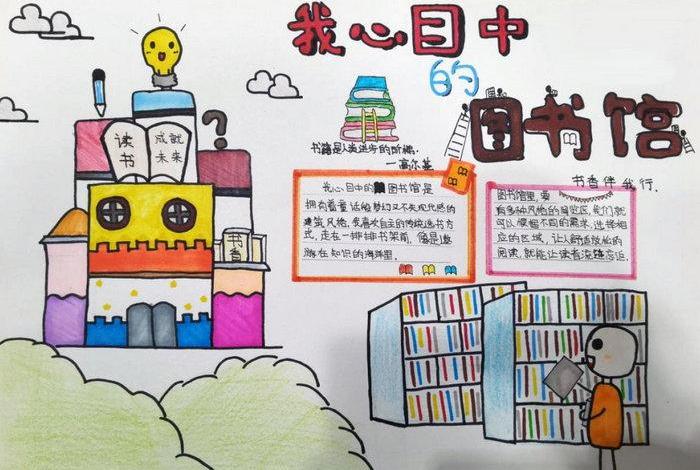 我心目中
的
图书馆
书香伴我行.
书籍是人类进步的阶梯.
—高尔基
读书
成就
未来
书香
我心目中的图书馆是
拥有着童话般梦幻又不失现代感的
建筑风格,我喜欢自主的传统选书方
式,走在一排排书架前,像是遨
游在知识的海洋里.
图书馆里,要
有多种风格的阅览区,我们就
可以根据不同的需求,选择相
应的区域,让人舒适放松的
阅读,就能让读者流连忘返.